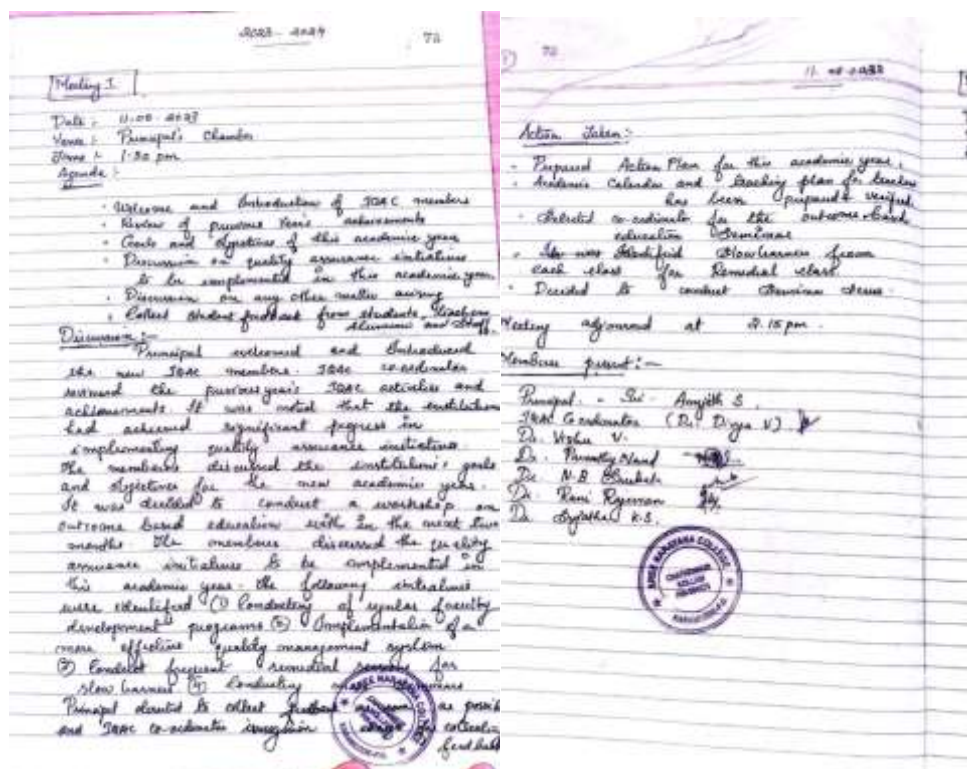 2023 - 2024
72
Meeting I
Date :
Venue : Principal's Chamber
Time : 1.30 pm
Agenda :
• Welcome and Introduction of IQAC members
• Review of previous Year's achievements
• Goals and objectives of this academic year
• Discussion on quality assurance initiatives
to be implemented in this academic year
• Discussion on any other matter arising
• Collect student feedback from students, Teachers
Alumini and Staff.
Discussion :-
Principal welcomed and Introduced
the new IQAC members. IQAC co-ordinator
reviewed the previous year's IQAC activities and
achievements. It was noted that the institution
had achieved significant progress in
implementing quality assurance initiatives.
The members discussed the institution's goals
and objectives for the new academic year.
It was decided to conduct a workshop on
outcome based education with in the next two
months. The members discussed the quality
assurance initiatives to be implemented in
this academic year. The following initiatives
were identified (1) Conducting of regular faculty
development programs (2) Implementation of a
more effective quality management system
(3) Conduct frequent remedial sessions for
slow learners (4) Conducting
Principal directed to collect feedback as possible
and IQAC co-ordinator
feedback
72
Action Taken :-
- Prepared Action Plan for this academic year.
• Academic Calendar and teaching plan for teachers
has been prepared & verified
• Selected co-ordinator for the outcome based
education Seminar
• Identified Slow learners from
each class for Remedial class
• Decided to conduct Seminar
Meeting adjourned at 2.15 pm.
Members present :-
Principal - Amjith S
IQAC Co-ordinator (Dr. Divya V)
Dr. Vishu V.
Dr.
Dr. N.B
Dr. Rani
Dr. K.S.
SREE NARAYANA COLLEGE